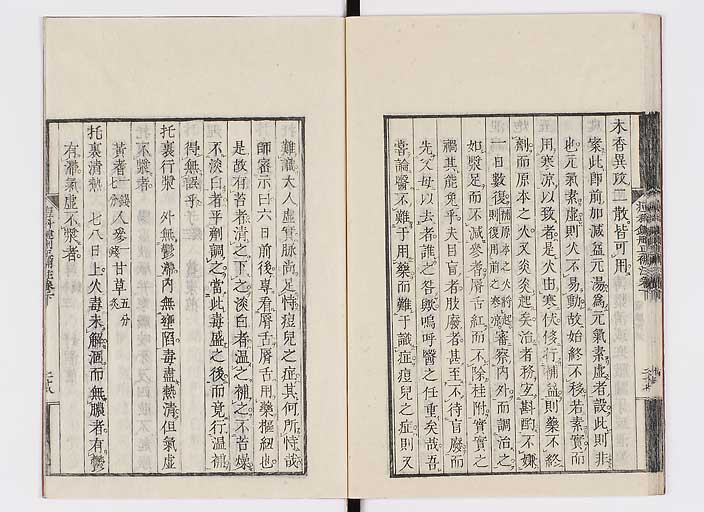 木香異攻二散皆可用
案此即前加減益元湯爲元氣素虛者設此則非
也元氣素虛則火不易動故始終不移若素實而
用寒凉以致者是火由寒伏移行補益則藥不終
劑而原本之火又炎炎起矣治者務宜斟酌不嫌
一日數復審察內外而調治之
漿足而不減參者脣舌紅而不除桂附實實之
禍其能免乎夫目盲者肢廢者甚至不待盲廢而
先父母以去者誰之咎歟嗚呼醫之任重矣哉吾
嘗論醫不難于用藥而難于識症痘兒之症則又
難識大人虛實脉尚足恃痘兒之症其何所恃哉
師審示曰六日前後專看脣舌脣舌用藥樞紐也
是故有苦者淸之下之淡白者溫之補之不苦燥
不淡白者平劑調之當此毒盛之後而竟行溫補
得無誤乎
托裏行漿 外無鬱滯內無壅陷毒盡熱淸但氣虛
不漿者
黃耆七分 人參一錢 甘草五分炙
托裏淸熱 七八日上火毒未解涸而無膿者有鬱
有滯氣虛不漿者